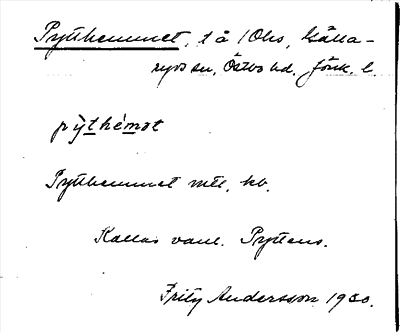 Pytthemmet, t å 1 Ohs, Gälla-
ryds sn, Östbo hd, Jönk. l.
pỳthémət
Pytthemmet mtl, kb.
Kallas vanl. Pyttens.
Fritz Andersson 1930.